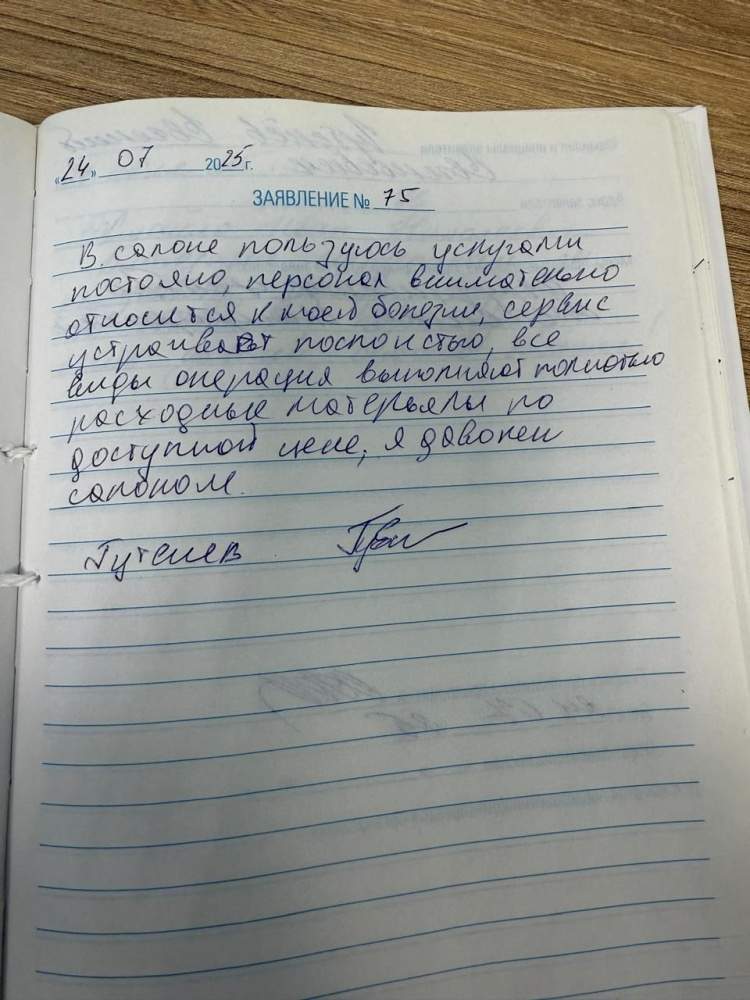 «24» 07 2025г.
ЗАЯВЛЕНИЕ № 75
В салоне пользуюсь услугами
постояно, персонал внимательно
относится к моей болезни, сервис
устраивает поспоистью, все
виды операция выполняют полностью
расходные матерьялы по
доступной цене, я доволен
салоном.
Гутенев